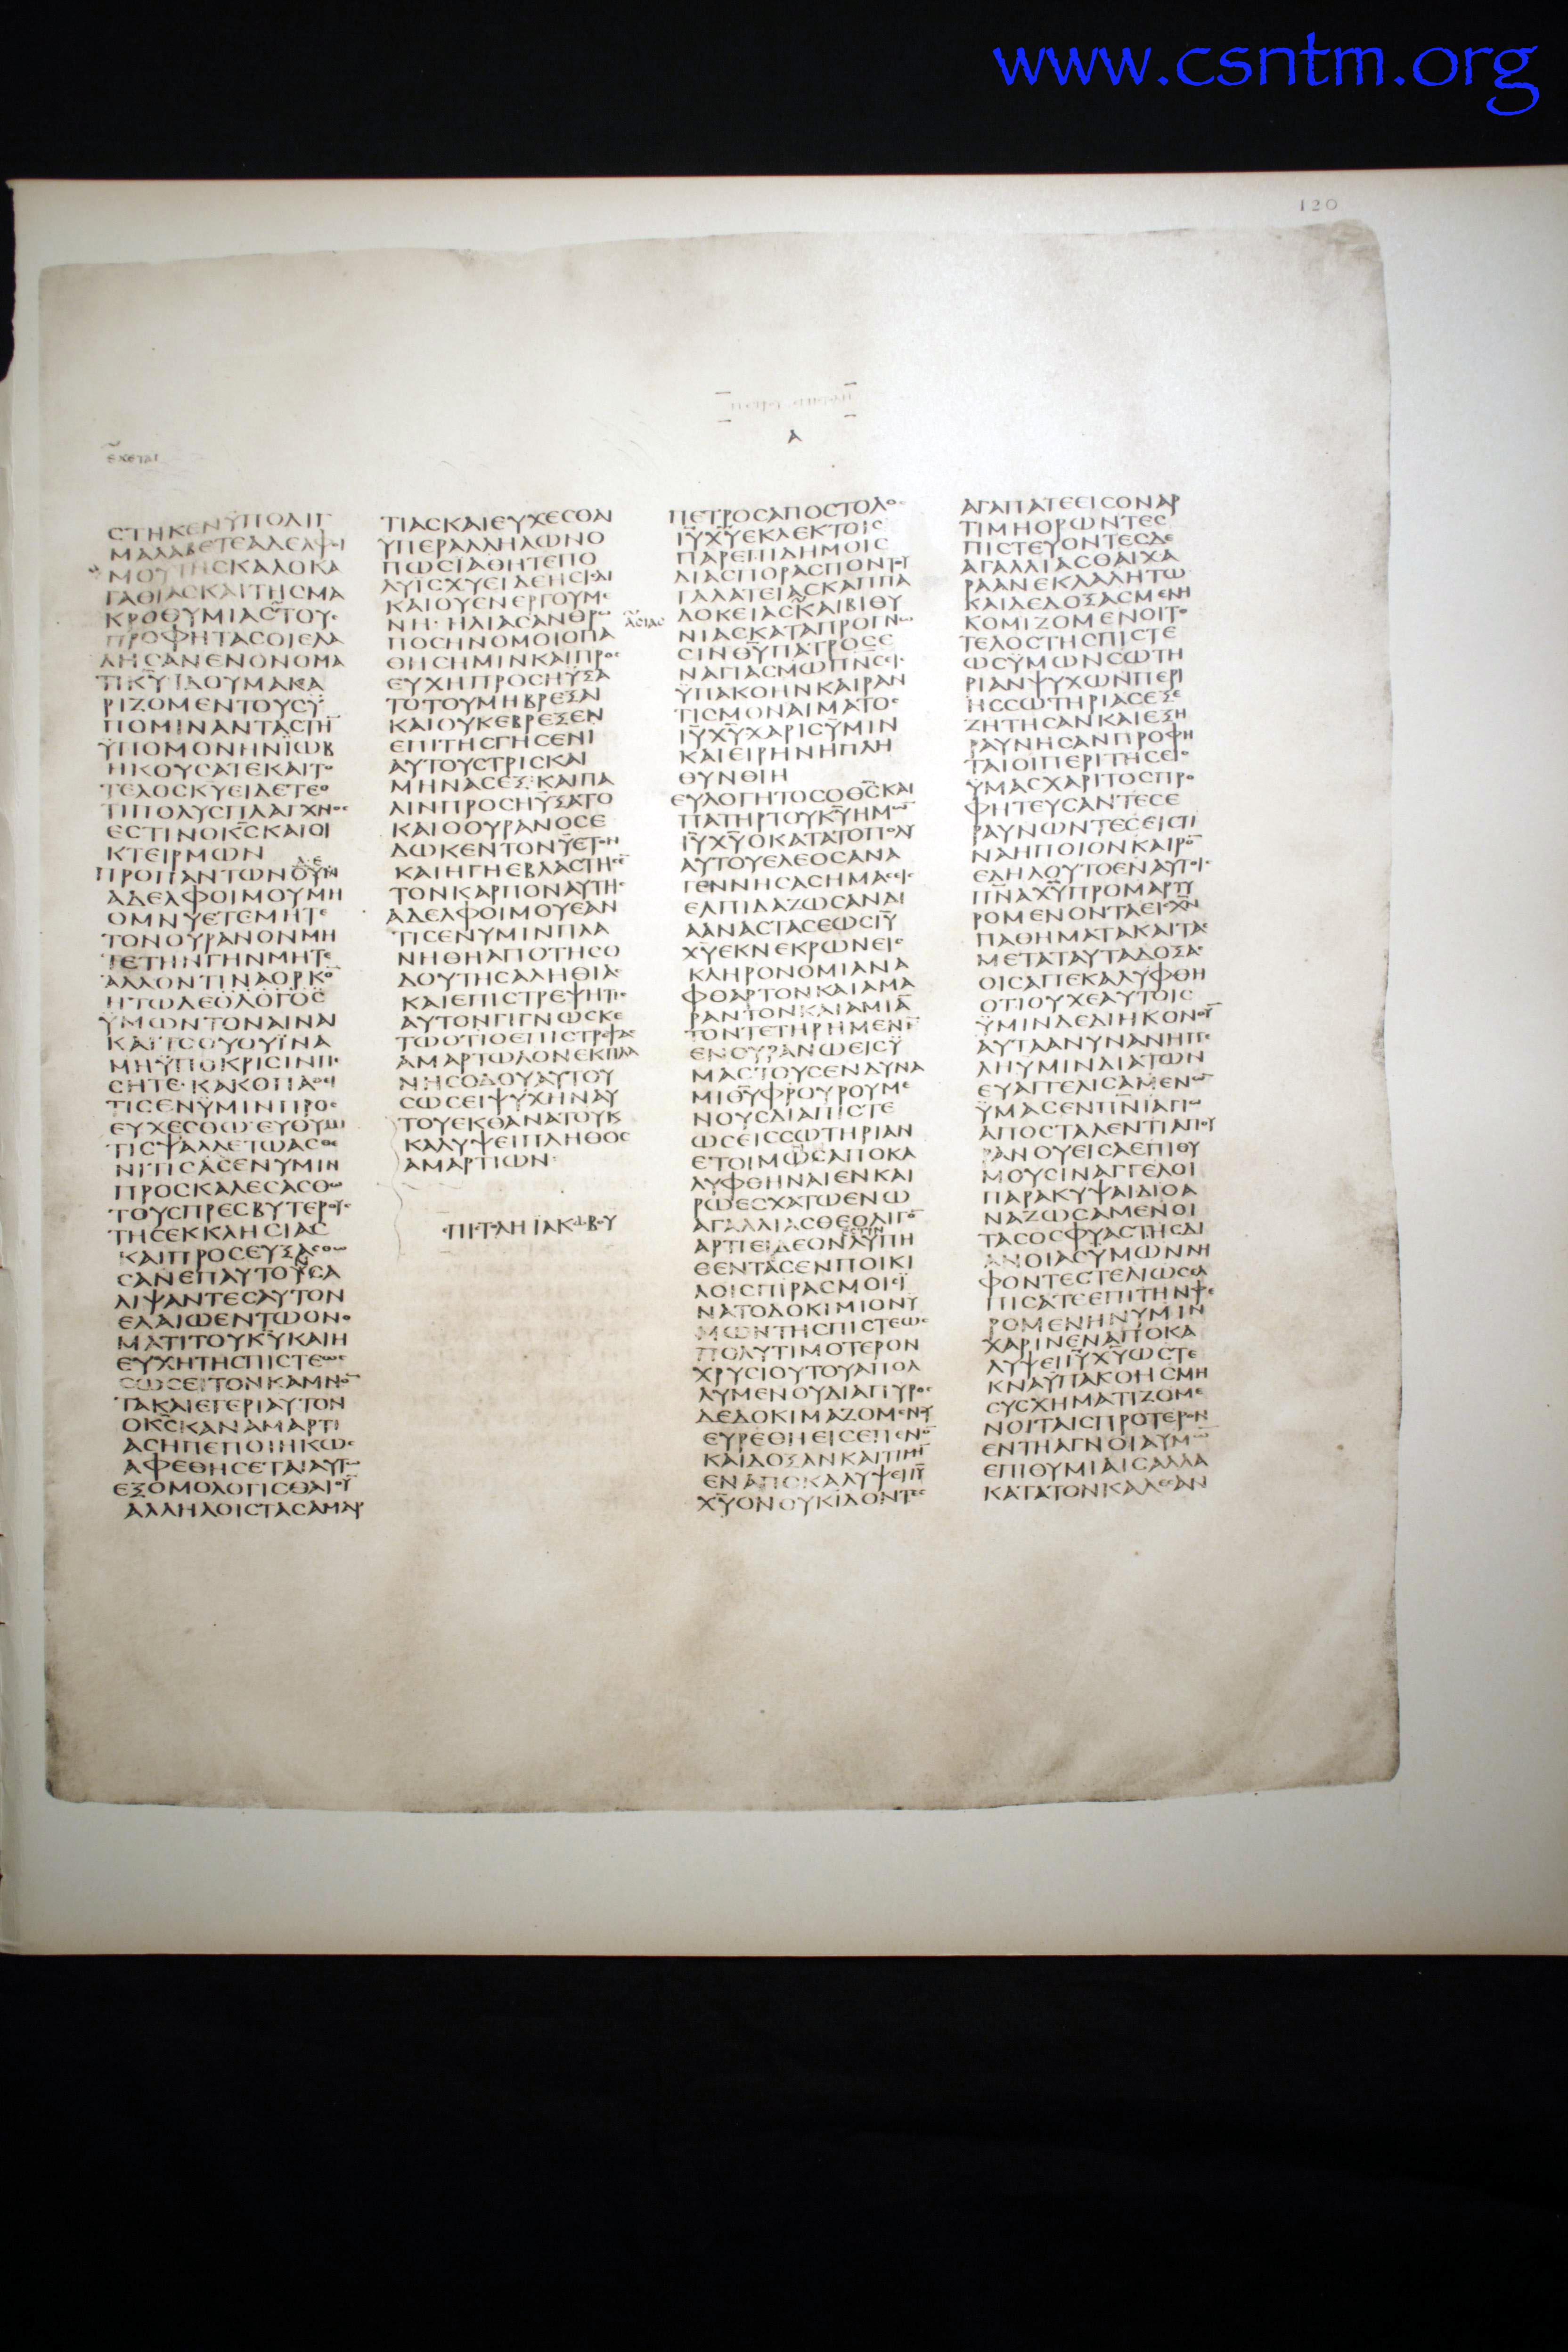 www.csntm.org
120
Α
ΕΧΕΤΑΙ
ΣΤΗΚΕΝ ΫΠΟΔΙΓ
ΜΑΛΑΒΕΤΕΑΔΕΛΦΟΙ
ΜΟΥΤΗΣΚΑΛΟΚΑ
ΓΑΘΙΑΣΚΑΙΤΗΣΜΑ
ΚΡΟΘΥΜΙΑΣΤΟΥΣ
ΠΡΟΦΗΤΑΣΟΙΕΛΑ
ΛΗΣΑΝΕΝΟΝΟΜΑ
ΤΙΚ̅Υ̅ΙΔΟΥΜΑΚΑ
ΡΙΖΟΜΕΝΤΟΥΣΫ
ΠΟΜΙΝΑΝΤΑΣΤΗ̅
ΫΠΟΜΟΝΗΝΪΩΒ
ΗΚΟΥΣΑΤΕΚΑΙΤΟ
ΤΕΛΟΣΚΥΕΙΔΕΤΕΟ
ΤΙΠΟΛΥΣΠΛΑΓΧΝΟΣ
ΕΣΤΙΝΟΚ̅Σ̅ΚΑΙΟΙ
ΚΤΕΙΡΜΩΝ
ΠΡΟΠΑΝΤΩΝΟΥΝ
ΑΔΕΛΦΟΙΜΟΥΜΗ
ΟΜΝΥΕΤΕΜΗΤΕ
ΤΟΝΟΥΡΑΝΟΝΜΗ
ΤΕΤΗΝΓΗΝΜΗΤΕ
ΑΛΛΟΝΤΙΝΑΟΡΚΟ̅
ΗΤΩΔΕΟΛΟΓΟΣ
ΫΜΩΝΤΟΝΑΙΝΑΙ
ΚΑΙΤΟΟΥΟΥΪΝΑ
ΜΗΫΠΟΚΡΙΣΙΝΠΕ
ΣΗΤΕ·ΚΑΚΟΠΑΘΕΙ
ΤΙΣΕΝΫΜΙΝΠΡΟΣ
ΕΥΧΕΣΘΩ·ΕΥΘΥΜΙ
ΤΙΣΨΑΛΛΕΤΩΑΣΘΕ
ΝΙΤΙΣΑΣΕΝΥΜΙΝ
ΠΡΟΣΚΑΛΕΣΑΣΘΩ
ΤΟΥΣΠΡΕΣΒΥΤΕΡΟΥΣ
ΤΗΣΕΚΚΛΗΣΙΑΣ
ΚΑΙΠΡΟΣΕΥΞΑΣΘΩ
ΣΑΝΕΠΑΥΤΟΥΣΑ
ΛΙΨΑΝΤΕΣΑΥΤΟΝ
ΕΛΑΙΩΕΝΤΩΟΝΟ
ΜΑΤΙΤΟΥΚ̅Υ̅ΚΑΙΗ
ΕΥΧΗΤΗΣΠΙΣΤΕΩΣ
ΣΩΣΕΙΤΟΝΚΑΜΝΟ̅
ΤΑΚΑΙΕΓΕΡΙΑΥΤΟΝ
ΟΚ̅Σ̅ΚΑΝΑΜΑΡΤΙ
ΑΣΗΠΕΠΟΙΗΚΩΣ
ΑΦΕΘΗΣΕΤΑΙΑΥΤΩ
ΕΞΟΜΟΛΟΓΙΣΘΑΙΟΥ̅
ΑΛΛΗΛΟΙΣΤΑΣΑΜΑΡ
ΤΙΑΣΚΑΙΕΥΧΕΣΘΑΙ
ΥΠΕΡΑΛΛΗΛΩΝΟ
ΠΩΣΙΑΘΗΤΕΠΟ
ΛΥΙΣΧΥΕΙΔΕΗΣΙΣΔΙ
ΚΑΙΟΥΕΝΕΡΓΟΥΜΕ
ΝΗ·ΗΛΙΑΣΑΝΘΡΩ
ΠΟΣΗΝΟΜΟΙΟΠΑ
ΘΗΣΗΜΙΝΚΑΙΠΡΟΣ
ΕΥΧΗΠΡΟΣΗΫΞΑ
ΤΟΤΟΥΜΗΒΡΕΞΑΙ
ΚΑΙΟΥΚΕΒΡΕΞΕΝ
ΕΠΙΤΗΣΓΗΣΕΝΙ
ΑΥΤΟΥΣΤΡΙΣΚΑΙ
ΜΗΝΑΣΕΞ·ΚΑΙΠΑ
ΛΙΝΠΡΟΣΗΫΞΑΤΟ
ΚΑΙΟΟΥΡΑΝΟΣΕ
ΔΩΚΕΝΤΟΝΫΕΤΟΝ
ΚΑΙΗΓΗΕΒΛΑΣΤΗΣΕ̅
ΤΟΝΚΑΡΠΟΝΑΥΤΗΣ
ΑΔΕΛΦΟΙΜΟΥΕΑΝ
ΤΙΣΕΝΥΜΙΝΠΛΑ
ΝΗΘΗΑΠΟΤΗΣΟ
ΔΟΥΤΗΣΑΛΗΘΙΑΣ
ΚΑΙΕΠΙΣΤΡΕΨΗΤΙΣ
ΑΥΤΟΝΓΙΓΝΩΣΚΕ
ΤΩΟΤΙΟΕΠΙΣΤΡΕΨΑΣ
ΑΜΑΡΤΩΛΟΝΕΚΠΛΑ
ΝΗΣΟΔΟΥΑΥΤΟΥ
ΣΩΣΕΙΨΥΧΗΝΑΥ
ΤΟΥΕΚΘΑΝΑΤΟΥΚ
ΚΑΛΥΨΕΙΠΛΗΘΟΣ
ΑΜΑΡΤΙΩΝ·
ΕΠΙΣΤΟΛΗ ΪΑΚΩΒΟΥ
ΠΕΤΡΟΣΑΠΟΣΤΟΛΟΣ
Ι̅Υ̅Χ̅Υ̅ΕΚΛΕΚΤΟΙΣ
ΠΑΡΕΠΙΔΗΜΟΙΣ
ΔΙΑΣΠΟΡΑΣΠΟΝΤΟΥ
ΓΑΛΑΤΕΙΑΣΚΑΠΠΑ
ΑΣΙΑΣ
ΔΟΚΕΙΑΣΚΑΙΒΙΘΥ
ΝΙΑΣΚΑΤΑΠΡΟΓΝΩ
ΣΙΝΘ̅Υ̅ΠΑΤΡΟΣΕ
ΝΑΓΙΑΣΜΩΠΝΣΕΙΣ
ΫΠΑΚΟΗΝΚΑΙΡΑΝ
ΤΙΣΜΟΝΑΙΜΑΤΟΣ
Ι̅Υ̅Χ̅Υ̅ΧΑΡΙΣΫΜΙΝ
ΚΑΙΕΙΡΗΝΗΠΛΗ
ΘΥΝΘΙΗ
ΕΥΛΟΓΗΤΟΣΟΘ̅Σ̅ΚΑΙ
ΠΑΤΗΡΤΟΥΚ̅Υ̅ΗΜΩ̅
Ι̅Υ̅Χ̅Υ̅ΟΚΑΤΑΤΟΠΟΛΥ
ΑΥΤΟΥΕΛΕΟΣΑΝΑ
ΓΕΝΝΗΣΑΣΗΜΑΣΕΙΣ
ΕΛΠΙΔΑΖΩΣΑΝΔΙ
ΑΑΝΑΣΤΑΣΕΩΣΙ̅Υ̅
Χ̅Υ̅ΕΚΝΕΚΡΩΝΕΙΣ
ΚΛΗΡΟΝΟΜΙΑΝΑ
ΦΘΑΡΤΟΝΚΑΙΑΜΑ
ΡΑΝΤΟΝΚΑΙΑΜΙΑ̅
ΤΟΝΤΕΤΗΡΗΜΕΝΗ̅
ΕΝΟΥΡΑΝΩΕΙΣΫ
ΜΑΣΤΟΥΣΕΝΔΥΝΑ
ΜΙΘ̅Υ̅ΦΡΟΥΡΟΥΜΕ
ΝΟΥΣΔΙΑΠΙΣΤΕ
ΩΣΕΙΣΣΩΤΗΡΙΑΝ
ΕΤΟΙΜΩΣΑΠΟΚΑ
ΛΥΦΘΗΝΑΙΕΝΚΑΙ
ΡΩΕΣΧΑΤΩΕΝΩ
ΑΓΑΛΛΙΑΣΘΕΟΛΙΓΟ̅
ΕΣΤΙΝ
ΑΡΤΙΕΙΔΕΟΝΛΥΠΗ
ΘΕΝΤΑΣΕΝΠΟΙΚΙ
ΛΟΙΣΠΙΡΑΣΜΟΙΣΪ
ΝΑΤΟΔΟΚΙΜΙΟΝΫ
ΜΩΝΤΗΣΠΙΣΤΕΩΣ
ΠΟΛΥΤΙΜΟΤΕΡΟΝ
ΧΡΥΣΙΟΥΤΟΥΑΠΟΛ
ΛΥΜΕΝΟΥΔΙΑΠΥΡΟΣ
ΔΕΔΟΚΙΜΑΖΟΜΕΝΟΥ
ΕΥΡΕΘΗΕΙΣΕΠΕΝΟ̅
ΚΑΙΔΟΞΑΝΚΑΙΤΙΜΗ̅
ΕΝΑΠΟΚΑΛΥΨΕΙΙ̅Υ̅
Χ̅Υ̅ΟΝΟΥΚΙΔΟΝΤΕΣ
ΑΓΑΠΑΤΕΕΙΣΟΝΑΡ
ΤΙΜΗΟΡΩΝΤΕΣ
ΠΙΣΤΕΥΟΝΤΕΣΔΕ
ΑΓΑΛΛΙΑΣΘΑΙΧΑ
ΡΑΑΝΕΚΛΑΛΗΤΩ
ΚΑΙΔΕΔΟΞΑΣΜΕΝΗ
ΚΟΜΙΖΟΜΕΝΟΙΤΟ
ΤΕΛΟΣΤΗΣΠΙΣΤΕ
ΩΣΫΜΩΝΣΩΤΗ
ΡΙΑΝΨΥΧΩΝΠΕΡΙ
ΗΣΣΩΤΗΡΙΑΣΕΞΕ
ΖΗΤΗΣΑΝΚΑΙΕΞΗ
ΡΑΥΝΗΣΑΝΠΡΟΦΗ
ΤΑΙΟΙΠΕΡΙΤΗΣΕΙΣ
ΫΜΑΣΧΑΡΙΤΟΣΠΡΟ
ΦΗΤΕΥΣΑΝΤΕΣΕ
ΡΑΥΝΩΝΤΕΣΕΙΣΤΙ
ΝΑΗΠΟΙΟΝΚΑΙΡΟ̅
ΕΔΗΛΟΥΤΟΕΝΑΥΤΟΙΣ
Π̅Ν̅Α̅Χ̅Υ̅ΠΡΟΜΑΡΤΥ
ΡΟΜΕΝΟΝΤΑΕΙΣΧ̅Ν̅
ΠΑΘΗΜΑΤΑΚΑΙΤΑΣ
ΜΕΤΑΤΑΥΤΑΔΟΞΑΣ
ΟΙΣΑΠΕΚΑΛΥΦΘΗ
ΟΤΙΟΥΧΕΑΥΤΟΙΣ
ΫΜΙΝΔΕΔΙΗΚΟΝΟΥ̅
ΑΥΤΑΑΝΥΝΑΝΗΓΓΕ
ΛΗΥΜΙΝΔΙΑΤΩΝ
ΕΥΑΓΓΕΛΙΣΑΜΕΝΩ̅
ΫΜΑΣΕΝΠ̅Ν̅Ι̅ΑΓΙΩ
ΑΠΟΣΤΑΛΕΝΤΙΑΠΟΥ
ΡΑΝΟΥΕΙΣΑΕΠΙΘΥ
ΜΟΥΣΙΝΑΓΓΕΛΟΙ
ΠΑΡΑΚΥΨΑΙΔΙΟΑ
ΝΑΖΩΣΑΜΕΝΟΙ
ΤΑΣΟΣΦΥΑΣΤΗΣΔΙ
ΑΝΟΙΑΣΥΜΩΝΝΗ
ΦΟΝΤΕΣΤΕΛΙΩΣΕΛ
ΠΙΣΑΤΕΕΠΙΤΗΝΦΕ
ΡΟΜΕΝΗΝΥΜΙΝ
ΧΑΡΙΝΕΝΑΠΟΚΑ
ΛΥΨΕΙΙ̅Υ̅Χ̅Υ̅ΩΣΤΕ
ΚΝΑΫΠΑΚΟΗΣΜΗ
ΣΥΣΧΗΜΑΤΙΖΟΜΕ
ΝΟΙΤΑΙΣΠΡΟΤΕΡΟΝ
ΕΝΤΗΑΓΝΟΙΑΥΜΩ̅
ΕΠΙΘΥΜΙΑΙΣΑΛΛΑ
ΚΑΤΑΤΟΝΚΑΛΕΣΑΝ